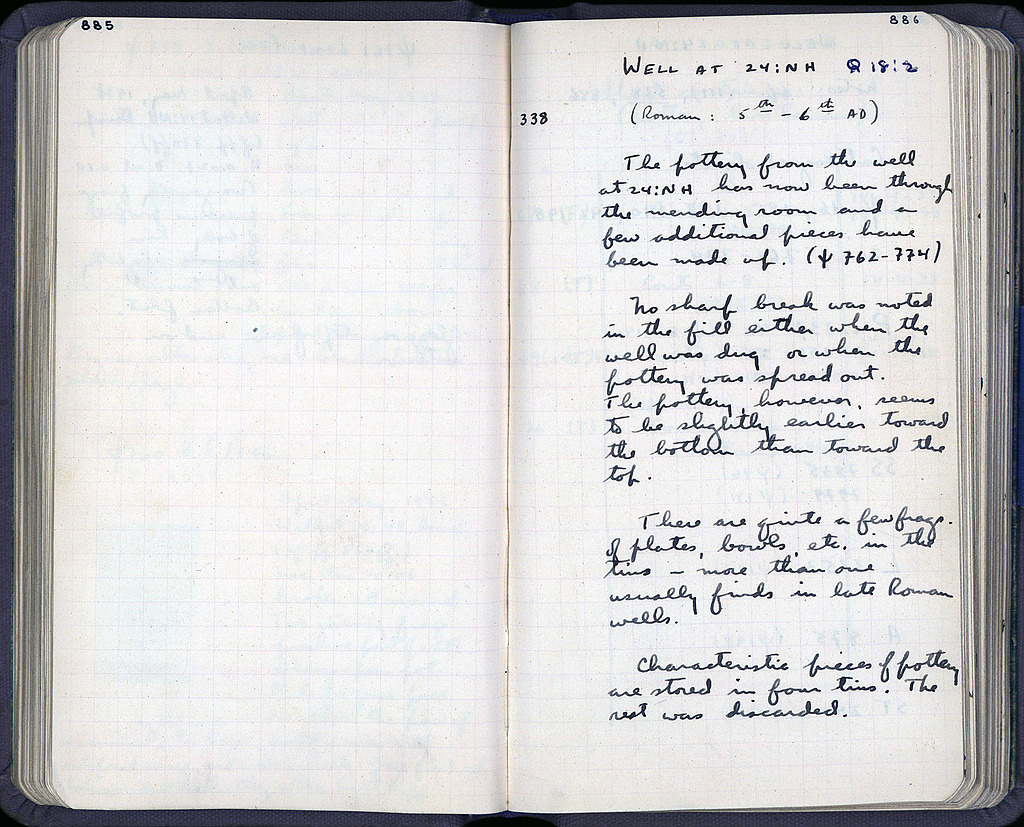 885
886
WELL AT 24:NH Q 18:2
338
(Roman: 5th – 6st AD)
The pottery from the well
at 24:NH has now been through
the mending room and a
few additional pieces have
been made up. (Ψ 762-774)
No sharp break was noted
in the fill either when the
well was dug or when the
pottery was spread out.
The pottery, however, seems
to be slightly earlier toward
the bottom than toward the
top.
There are quite a few frags.
of plates, bowls, etc. in the
tins – more than one
usually finds in late Roman
wells.
Characteristic pieces of pottery
are stored in four tins. The
rest was discarded.